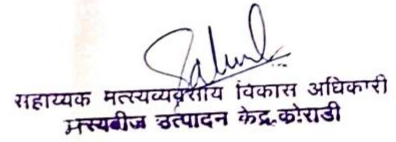 सहाय्यक मत्स्यव्यवसाय विकास अधिकारी
मत्स्यबीज उत्पादन केंद्र.कोराडी